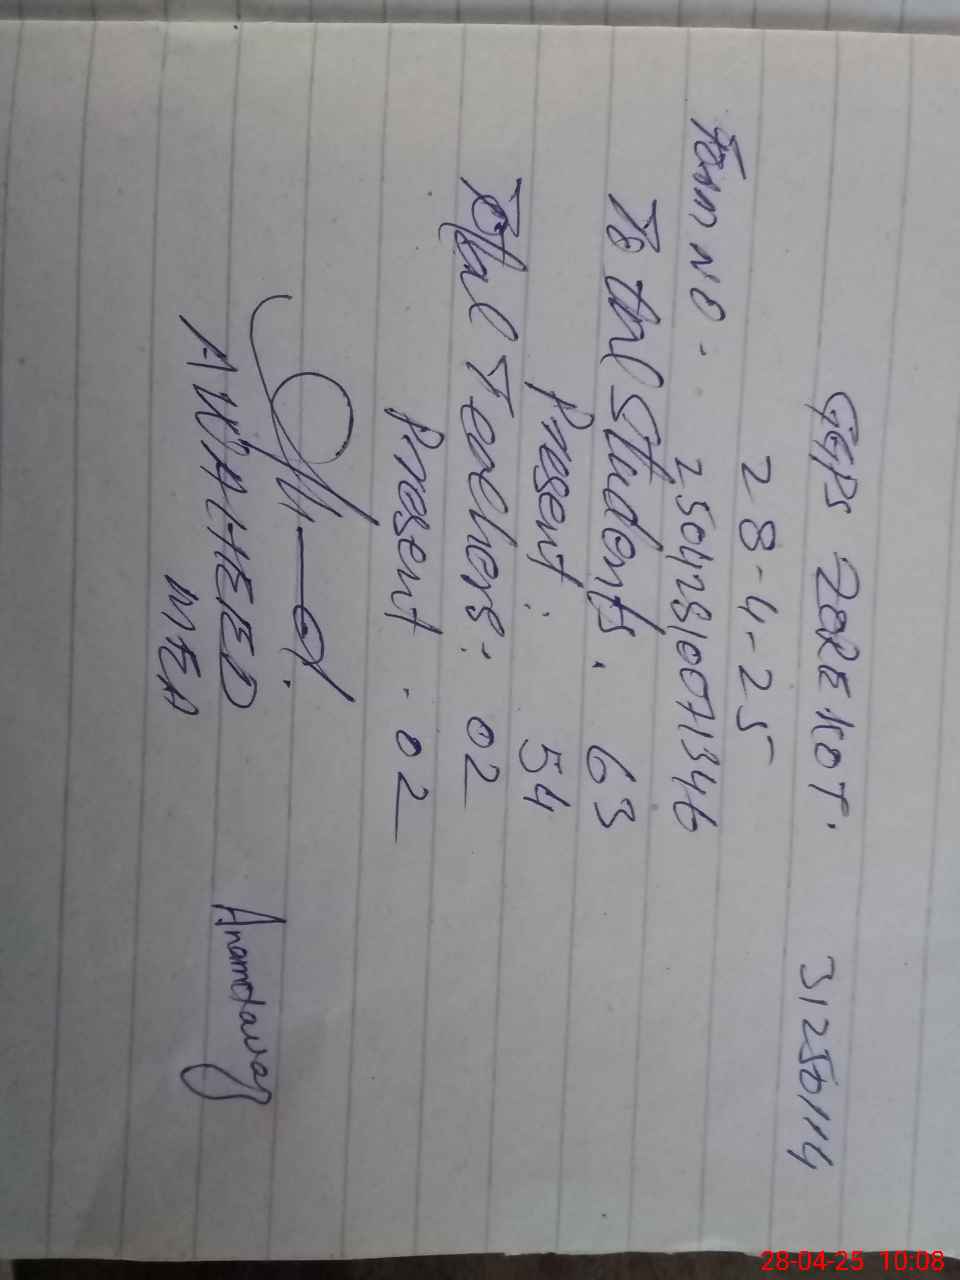 GGPS ZARE KOT. 31250114
28-4-25
Form NO. 25042810071346
Total Students. 63
Present : 54
Total Teachers : 02
Present . 02
A WAHEED
MEA
28-04-25 10:08